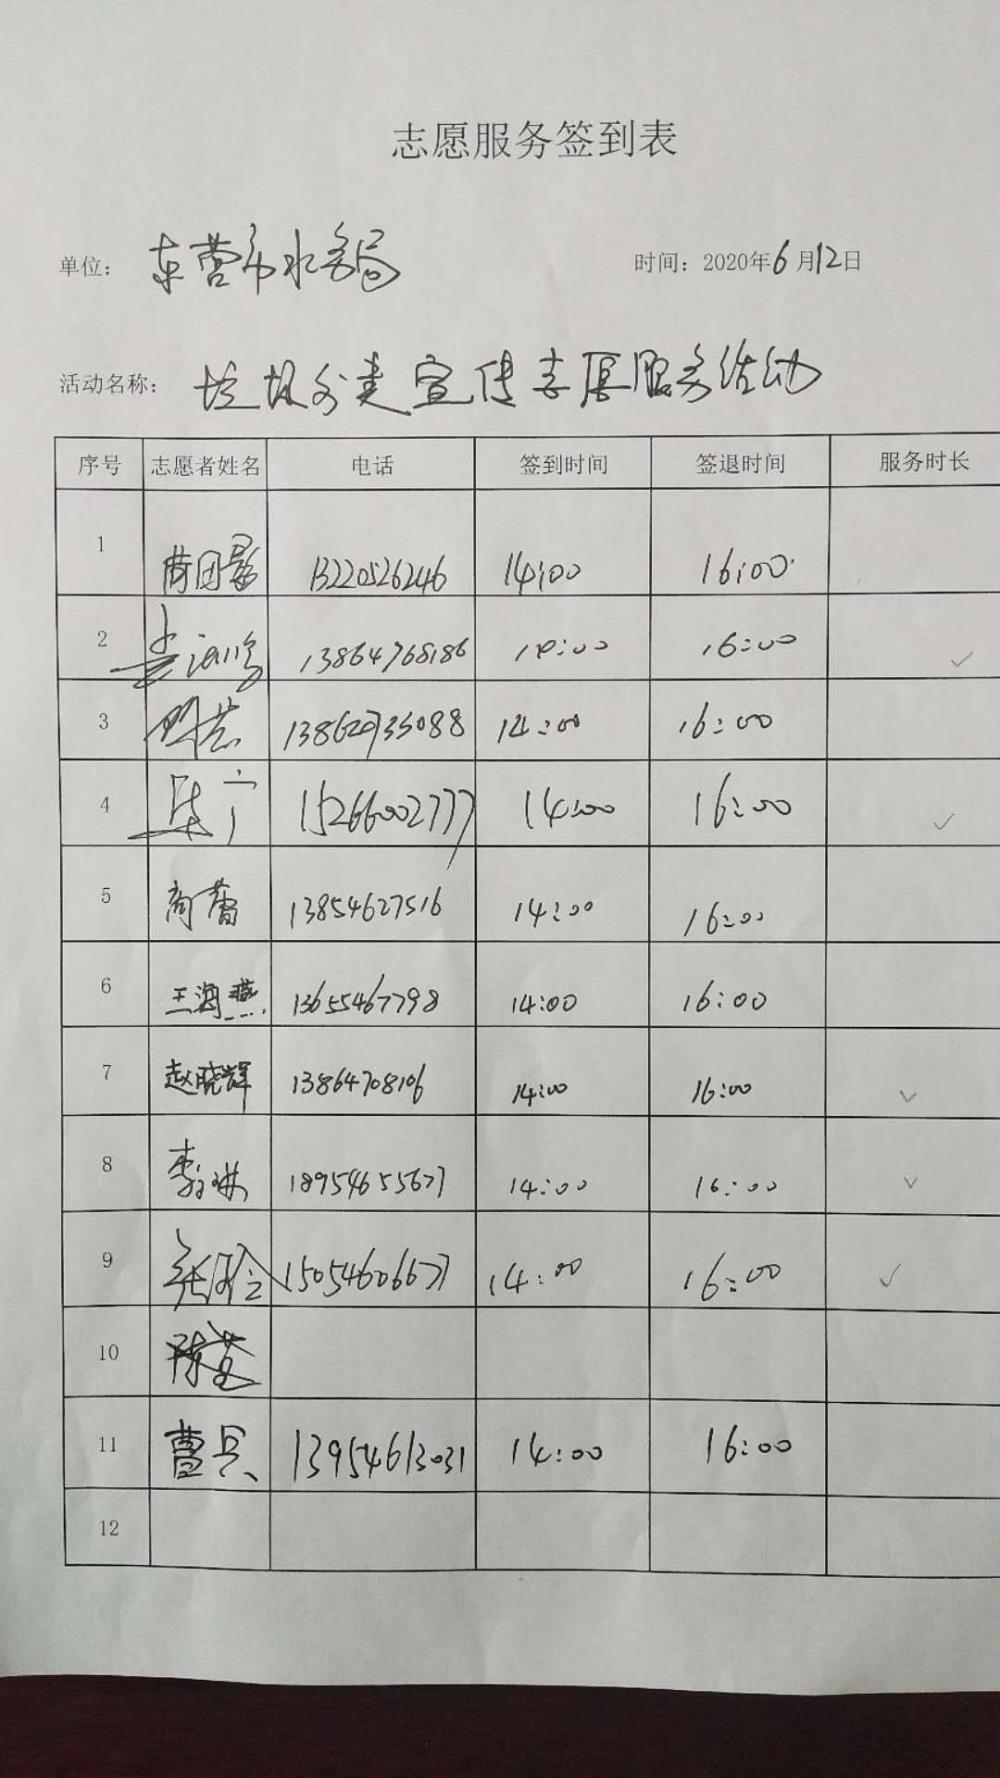 志愿服务签到表
单位： 东营市水务局 时间：2020年6月12日
活动名称： 垃圾分类宣传志愿服务活动
序号 志愿者姓名 电话 签到时间 签退时间 服务时长
1 13220526246 14:00 16:00
2 13864768186 14:00 16:00 ✓
3 14:00 16:00
4 15266002777 14:00 16:00 ✓
5 商蕾 13854627516 14:00 16:00
6 王海燕 13655467798 14:00 16:00
7 赵晓辉 13864708106 14:00 16:00 ✓
8 李琳 18954655677 14:00 16:00 ✓
9 15054606677 14:00 16:00 ✓
10
11 曹兵 13954613031 14:00 16:00
12